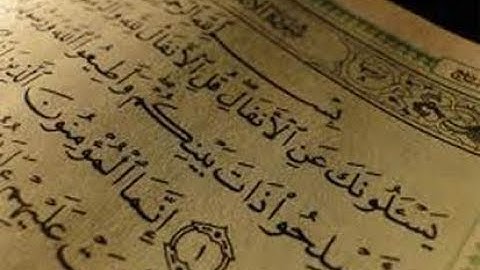 سُورَةُ
بِسْمِ ٱللَّهِ
يَسْـَٔلُونَكَ عَنِ ٱلْأَنفَالِ قُلِ ٱلْأَنفَالُ لِلَّهِ
صْلِحُوا۟ ذَاتَ بَيْنِكُمْ وَأَطِيعُوا۟ ٱللَّهَ
١ إِنَّمَا ٱلْمُؤْمِنُونَ ٱلَّذِينَ
تْ عَلَيْهِمْ